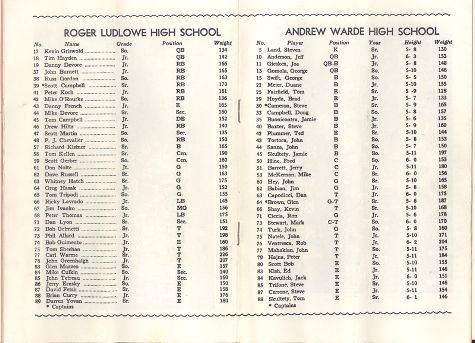 ROGER LUDLOWE HIGH SCHOOL
No. Name Grade Position Weight
17 Kevin Griswold Sr. QB 134
18 Tim Hayden Jr. QB 142
19 Danny Devore Jr. RB 166
37 John Burnett Jr. RB 165
38 Russ Gordon So. RB 163
39 *Scott Campbell Sr. RB 173
41 Peter Koch Jr. RB 161
42 Mike O'Rourke RB 136
43 Danny French Jr. E 165
44 Mike Devore Sec. 160
45 Tom Campbell Jr. DE 152
46 Drew Hilts Jr. RB 143
47 Scott Martin So. Sec. 135
48 P. J. Chevalier So. RB 150
57 Richard Kistner Sr. B 165
58 Tom Kellen Sr. E 190
59 Scott Gerber So. Cen. 160
61 Don Nolte Jr. G
62 Dave Russell Sr. G 163
63 Whitney Hatch Sr. G 175
64 Greg Hasak Jr. G
65 Tom Tripodi Sr. G
66 Ricky Lavado Jr. LB 148
67 Jim Ivasko So. MG 156
68 Peter Thomas Jr. LB 175
71 Dan Lyon Sr. Sec. 151
72 Bob Ochnett Sr. T 192
73 Phil Allard Jr. T 198
74 Bob Guimento Jr. E 160
75 Tom Sheehan Jr. T 186
77 Carl Warns Sr. T 226
78 John Greenhalgh Jr. T 207
83 Glen Moraes So. E 157
84 Mike Culkin Sr. Sec. 140
85 John Tebeau Jr. Sec. 150
86 Jerry Krasky So. E 150
87 David Fetsh Sr. E 158
88 Brian Curry Jr. E 176
89 Darren Yovan Sr. E 180
* Captains
ANDREW WARDE HIGH SCHOOL
No. Player Position Year Height Weight
5 Lund, Steven K Sr. 5- 8 130
10 Anderson, Jeff QB Jr. 6- 3 153
11 Gieskes, Joe QB-B Jr. 5- 8 148
13 Gomola, George QB So. 5-10 146
15 Swift, George B So. 5- 5 150
22 Meier, Duane B Jr. 5-10 151
25 Fairfield, Tom E Sr. 5-9 128
29 Hoydu, Brad E Jr. 5- 7 133
30 *Cameron, Steve B Sr. 5- 9 165
33 Campbell, Doug B Sr. 5- 8 157
35 Buonicontri, Jamie B Jr. 5- 6 135
40 Baxter, Steve B Jr. 5- 9 160
42 Plummer, Ted E Sr. 5-10 144
43 Tortora, John B So. 5- 8 153
44 Santa, John B So. 5- 7 150
45 Skultety, Jamie B So. 5-11 197
50 Hine, Fred C So. 6- 0 153
51 Barrett, Jerry C Jr. 5-11 180
53 McKernon, Mike C Sr. 6- 0 156
60 Hey, John G Sr. 5-10 165
62 Babian, Jim G Jr. 5- 8 158
63 Capodici, Dan T Jr. 6- 0 175
64 *Brown, Glen G-T Sr. 5- 6 187
66 Shay, Kevin T Sr. 5-10 168
71 Ciccia, Ron G Jr. 5- 6 178
73 Stewart, Mark C-T So. 6- 0 170
74 Turk, John G So. 5- 8 160
75 Natels, John T Jr. 5-10 171
76 Ventresca, Rob T Jr. 6- 2 204
77 Mahakian, John T So. 5-11 175
79 Hajna, Peter T Jr. 5-11 184
80 Scott Bob E So. 5-10 155
83 Kish, Ed E Jr. 5-11 146
84 Kavulich, Jack E Jr. 6- 0 151
85 Trifone, Steve E Sr. 5-10 146
87 Carrone, Steve E Jr. 5-11 154
88 Skultety, Tom E Sr. 6- 1 146
* Captains